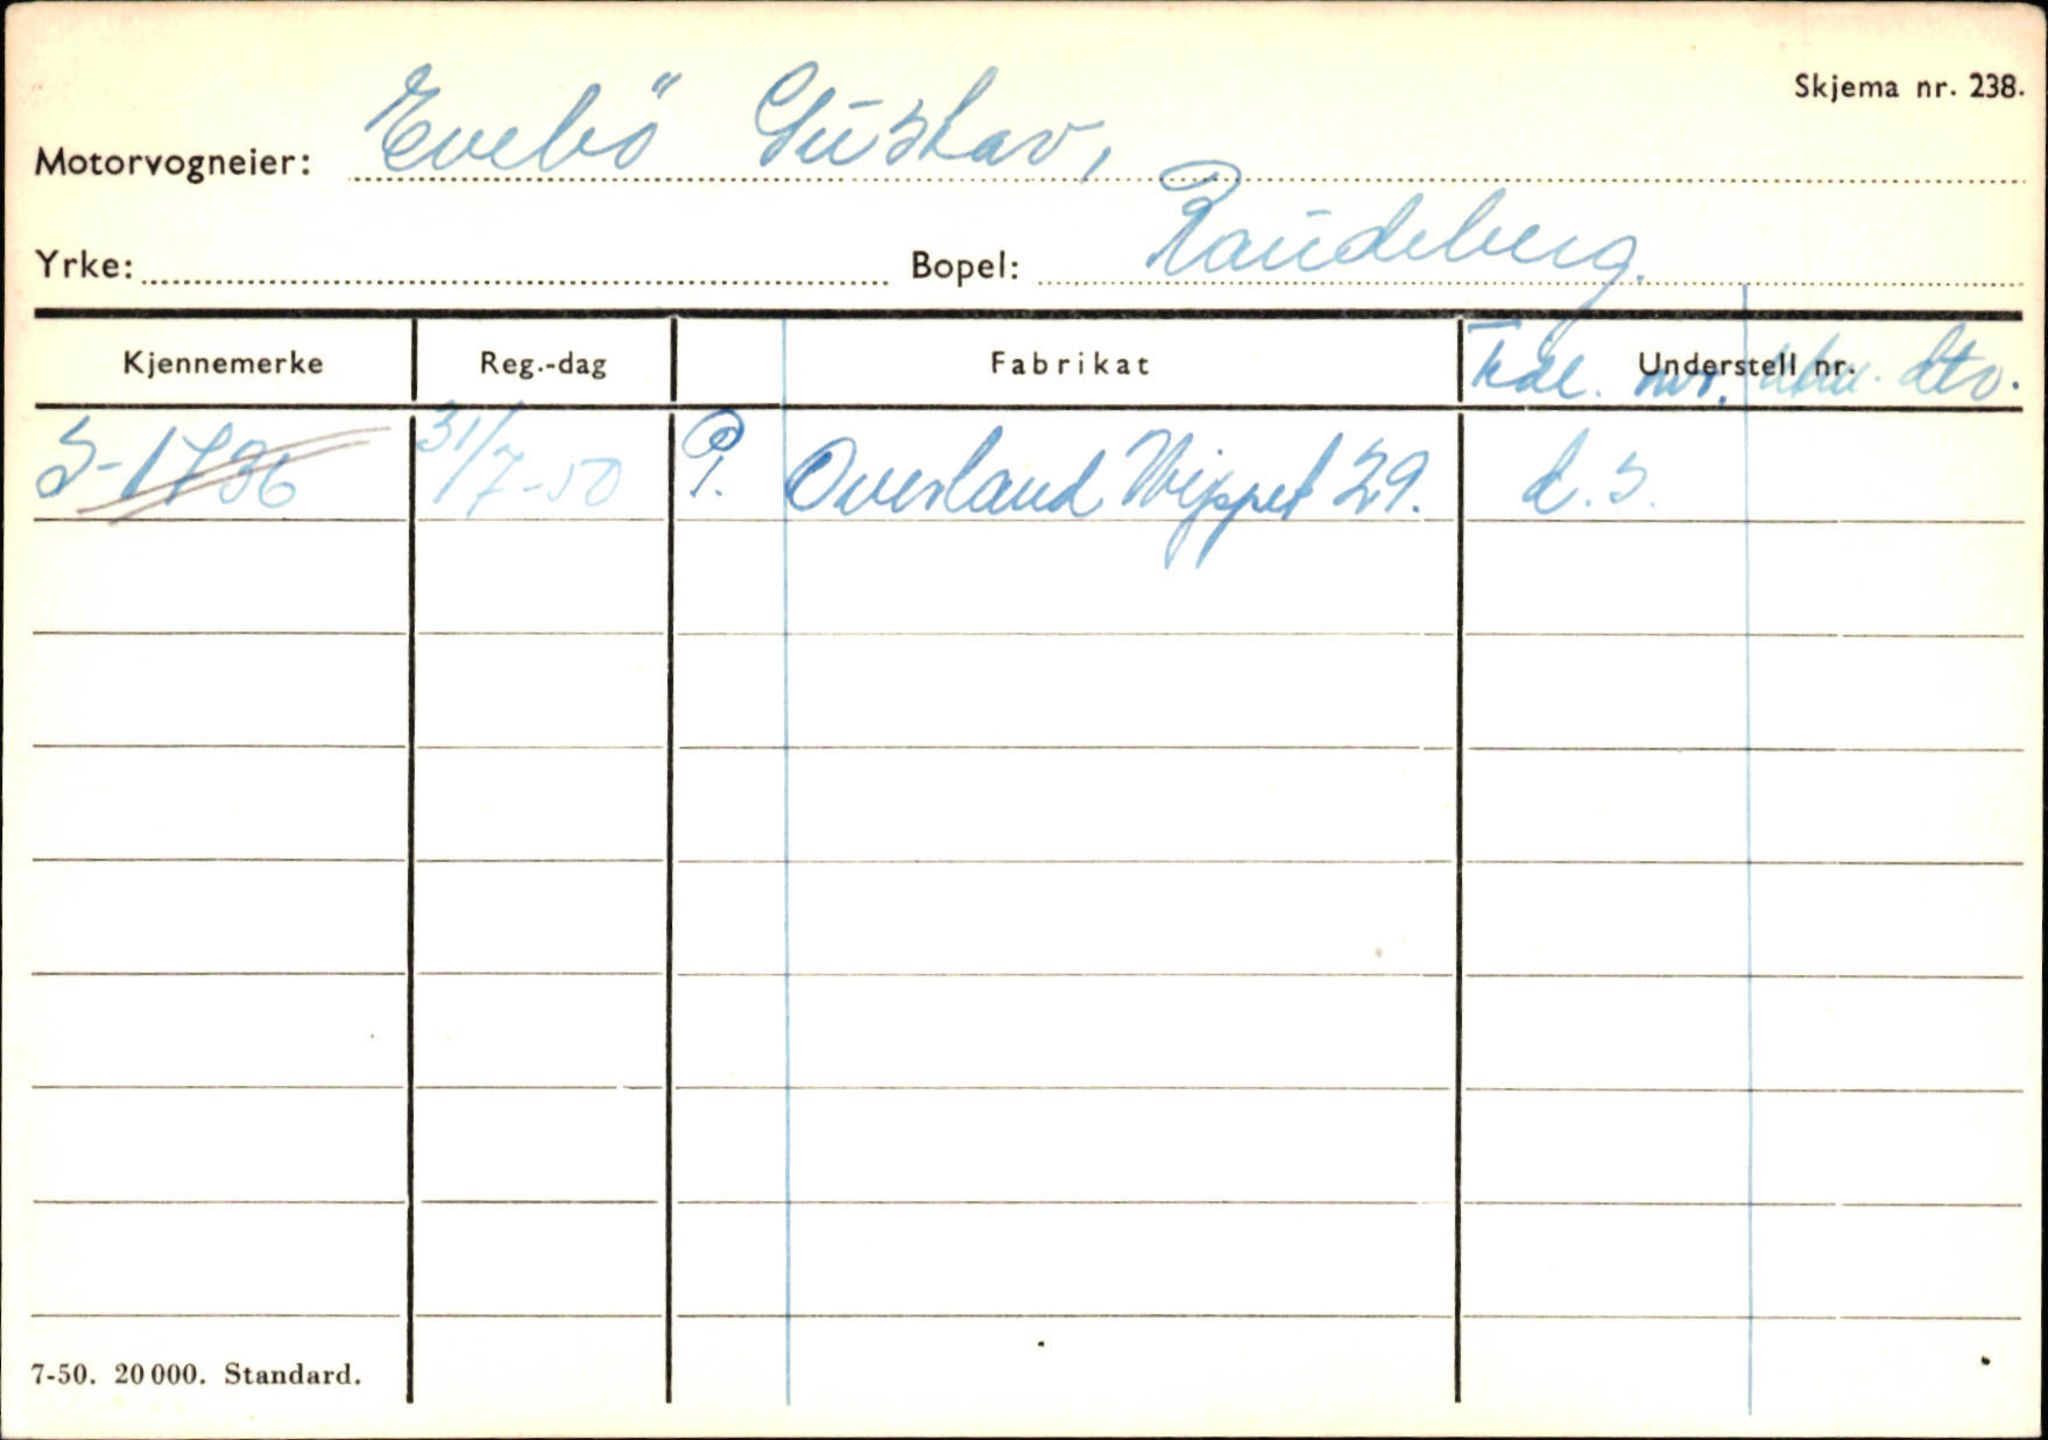 Skjema nr. 238.
Motorvogneier: Evebö Gustav,
Yrke: Bopel: Raudeberg.
Kjennemerke Reg.-dag Fabrikat Understell nr. dto.
S-1736 31/7-50 P. Overland Wippet 29. d.s.
7-50. 20 000. Standard.